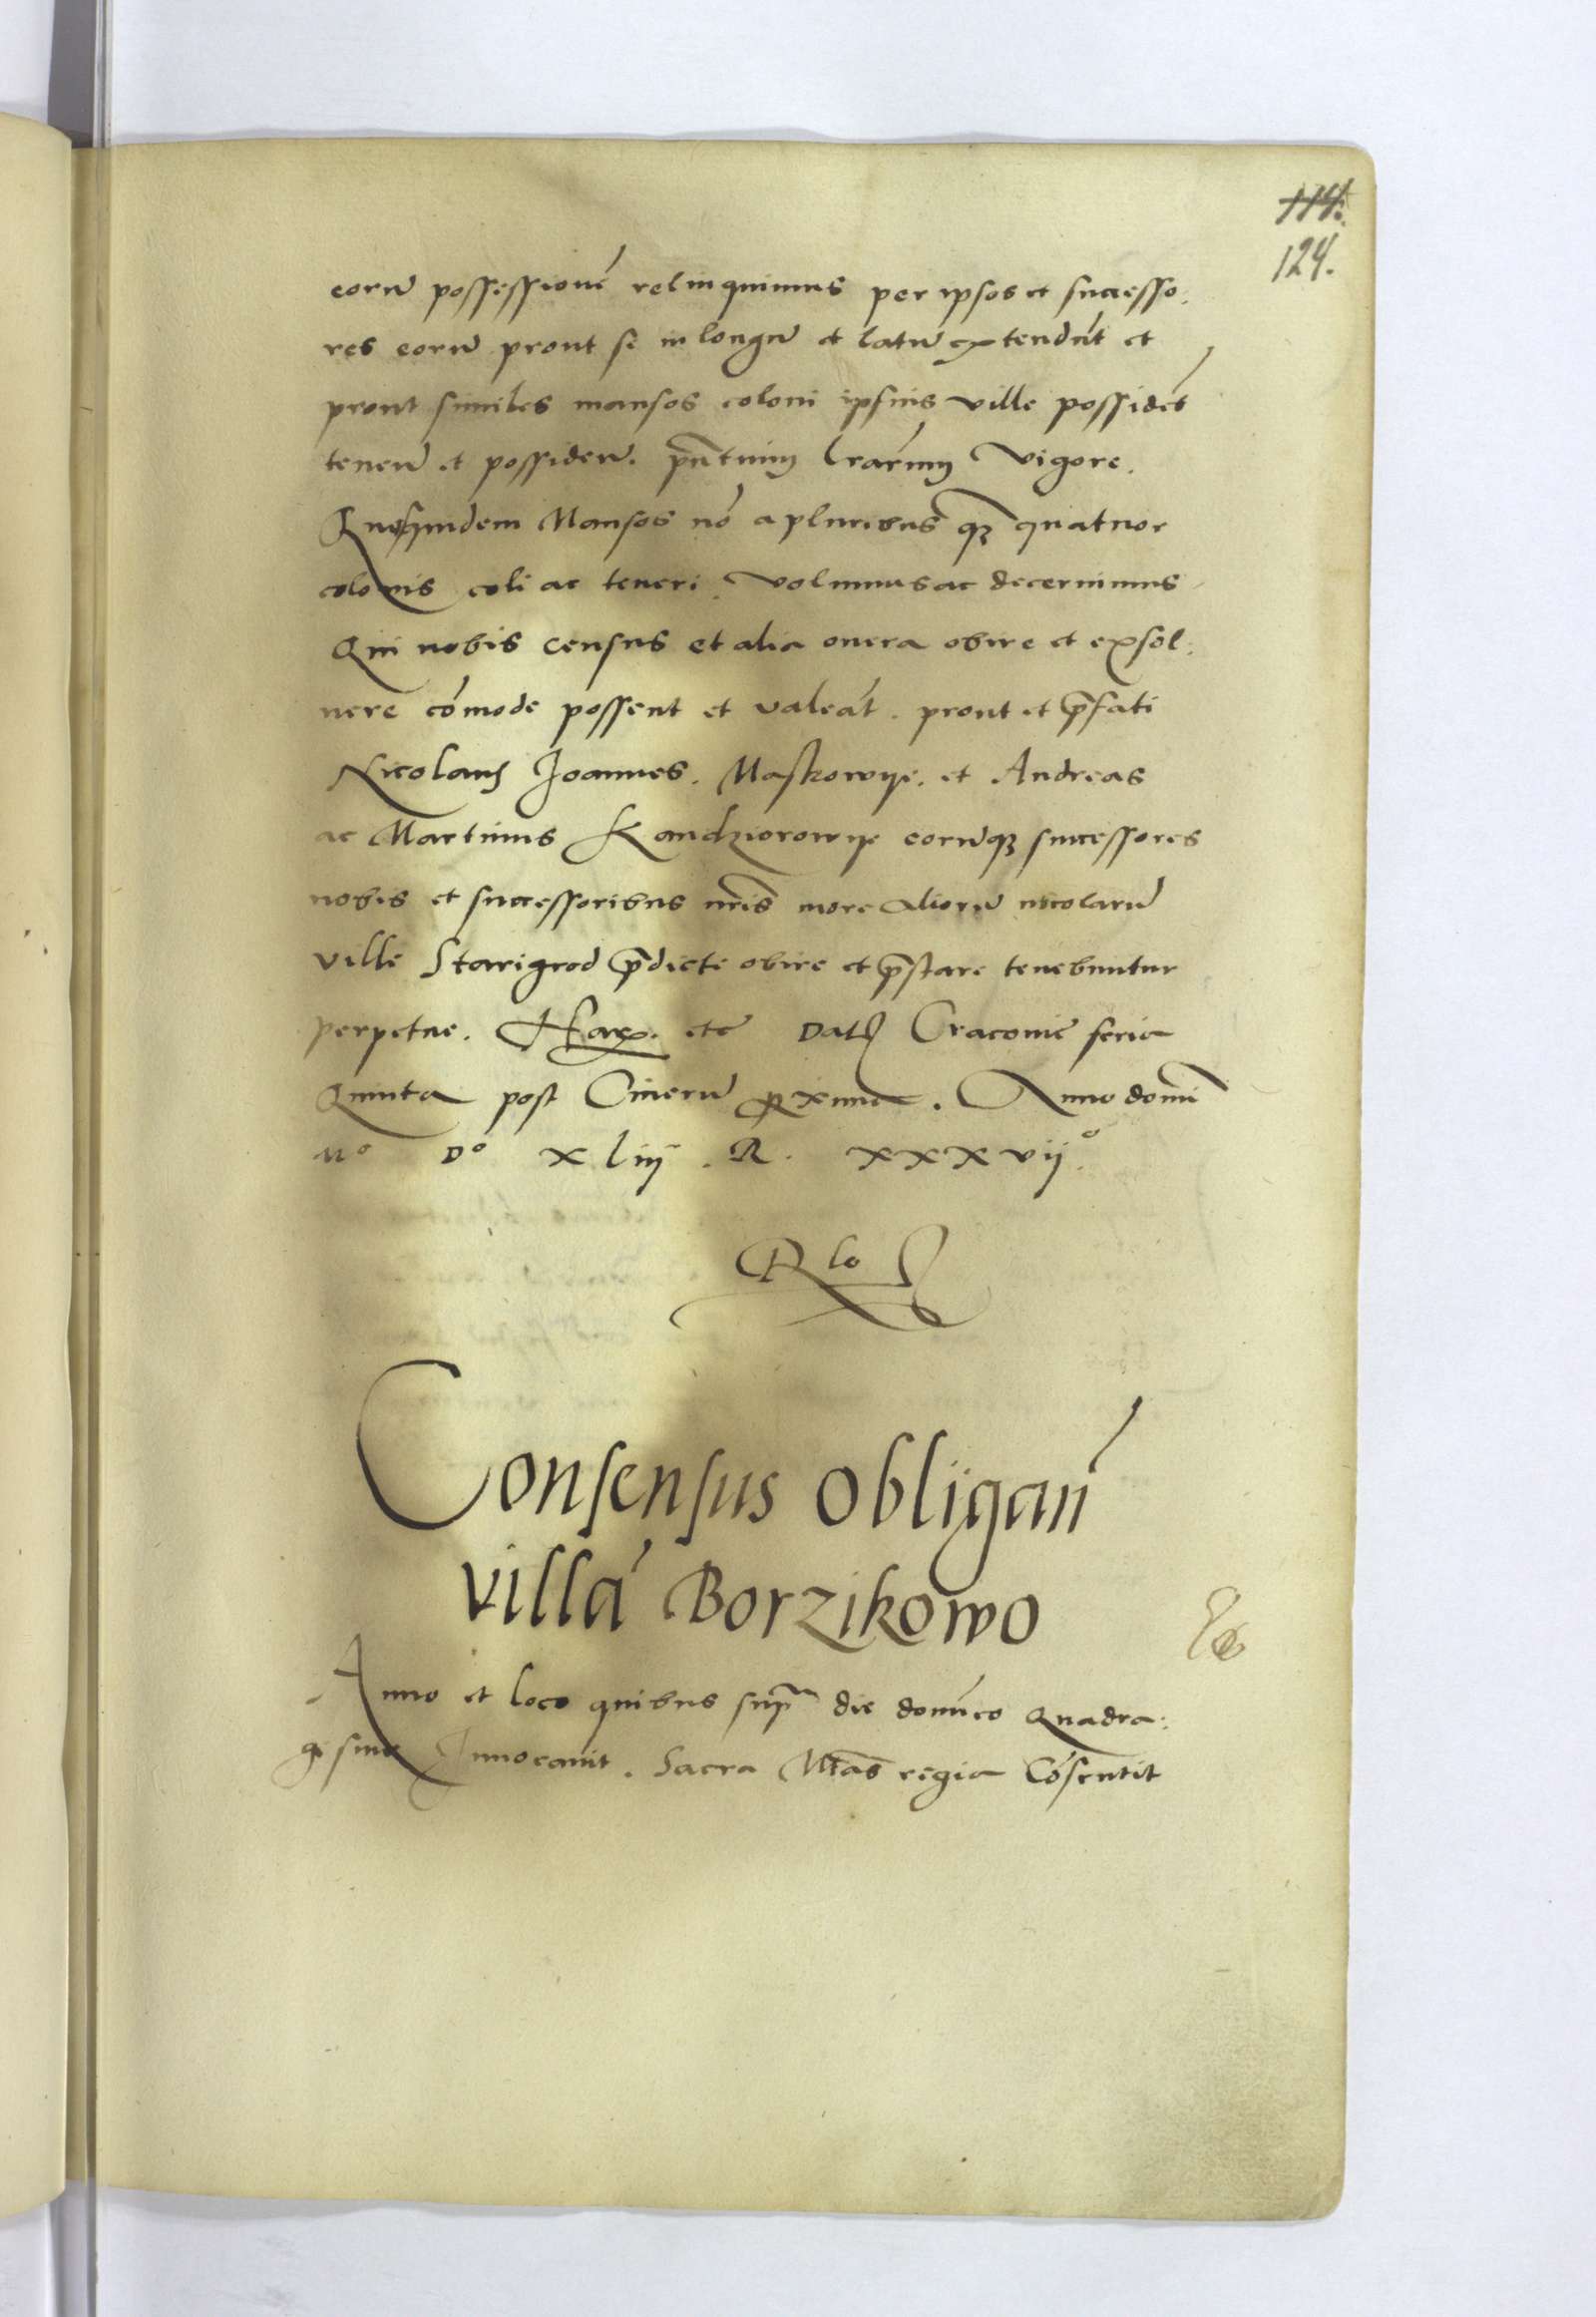 114.
124.
eorū possessionē relinquimus per ipsos et successo:
res eorū prout se in longū et latū extendūt et
prout similes mansos coloni ipsius ville possidēt
tenen̄ et possiden̄. pn̄tium lrārum vigore.
Quosquidem Mansos nō a pluribus qꝫ quatuor
colonis coli ac teneri. volumus ac decernimus
Qui nobis census et alia onera obire et exsol:
uere cōmode possent et valeāt. prout et p̄fati
Nicolaus Joannes. Maskowye. et Andreas
ac Martinus Kandziorowye eorūqꝫ successores
nobis et successoribus nr̄is more aliorū incolarū
ville Starigrod p̄dicte obire et p̄stare tenebuntur
perpetue. Harx. etc̄ Datꝭ Cracouie feria
Quinta post Cinerū proxima. Anno domī
Mº Dº xliiȷ. R. xxxvijº.
Consensus obligan̄
villā Borzikowo
Anno et loco quibus supra die domīco Quadra:
gesime Inuocauit. Sacra Mtās regia Cōsentit